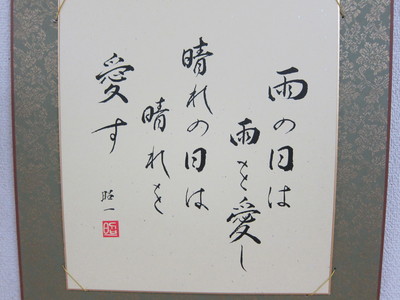 雨の日は
雨を愛し
晴れの日は
晴れを
愛す
昭一